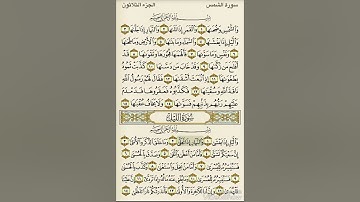 سورة الشمس الجزء الثلاثون
بِسْمِ اللَّهِ الرَّحْمَٰنِ الرَّحِيمِ
وَالشَّمْسِ وَضُحَاهَا وَالْقَمَرِ إِذَا تَلَاهَا وَالنَّهَارِ إِذَا جَلَّاهَا
وَاللَّيْلِ إِذَا يَغْشَاهَا وَالسَّمَاءِ وَمَا بَنَاهَا وَالْأَرْضِ وَمَا طَحَاهَا
وَنَفْسٍ وَمَا سَوَّاهَا فَأَلْهَمَهَا فُجُورَهَا وَتَقْوَاهَا قَدْ
أَفْلَحَ مَنْ زَكَّاهَا وَقَدْ خَابَ مَنْ دَسَّاهَا كَذَّبَتْ ثَمُودُ
بِطَغْوَاهَا إِذِ انْبَعَثَ أَشْقَاهَا فَقَالَ لَهُمْ رَسُولُ اللَّهِ
نَاقَةَ اللَّهِ وَسُقْيَاهَا فَكَذَّبُوهُ فَعَقَرُوهَا فَدَمْدَمَ
عَلَيْهِمْ رَبُّهُمْ بِذَنْبِهِمْ فَسَوَّاهَا وَلَا يَخَافُ عُقْبَاهَا
سُورَةُ اللَّيْلِ
بِسْمِ اللَّهِ الرَّحْمَٰنِ الرَّحِيمِ
وَاللَّيْلِ إِذَا يَغْشَى وَالنَّهَارِ إِذَا تَجَلَّى وَمَا خَلَقَ الذَّكَرَ وَالْأُنْثَى
إِنَّ سَعْيَكُمْ لَشَتَّى فَأَمَّا مَنْ أَعْطَى وَاتَّقَى وَصَدَّقَ بِالْحُسْنَى
فَسَنُيَسِّرُهُ لِلْيُسْرَى وَأَمَّا مَنْ بَخِلَ وَاسْتَغْنَى وَكَذَّبَ بِالْحُسْنَى
فَسَنُيَسِّرُهُ لِلْعُسْرَى وَمَا يُغْنِي عَنْهُ مَالُهُ إِذَا تَرَدَّى إِنَّ عَلَيْنَا
لَلْهُدَى وَإِنَّ لَنَا لَلْآخِرَةَ وَالْأُولَى فَأَنْذَرْتُكُمْ نَارًا تَلَظَّى